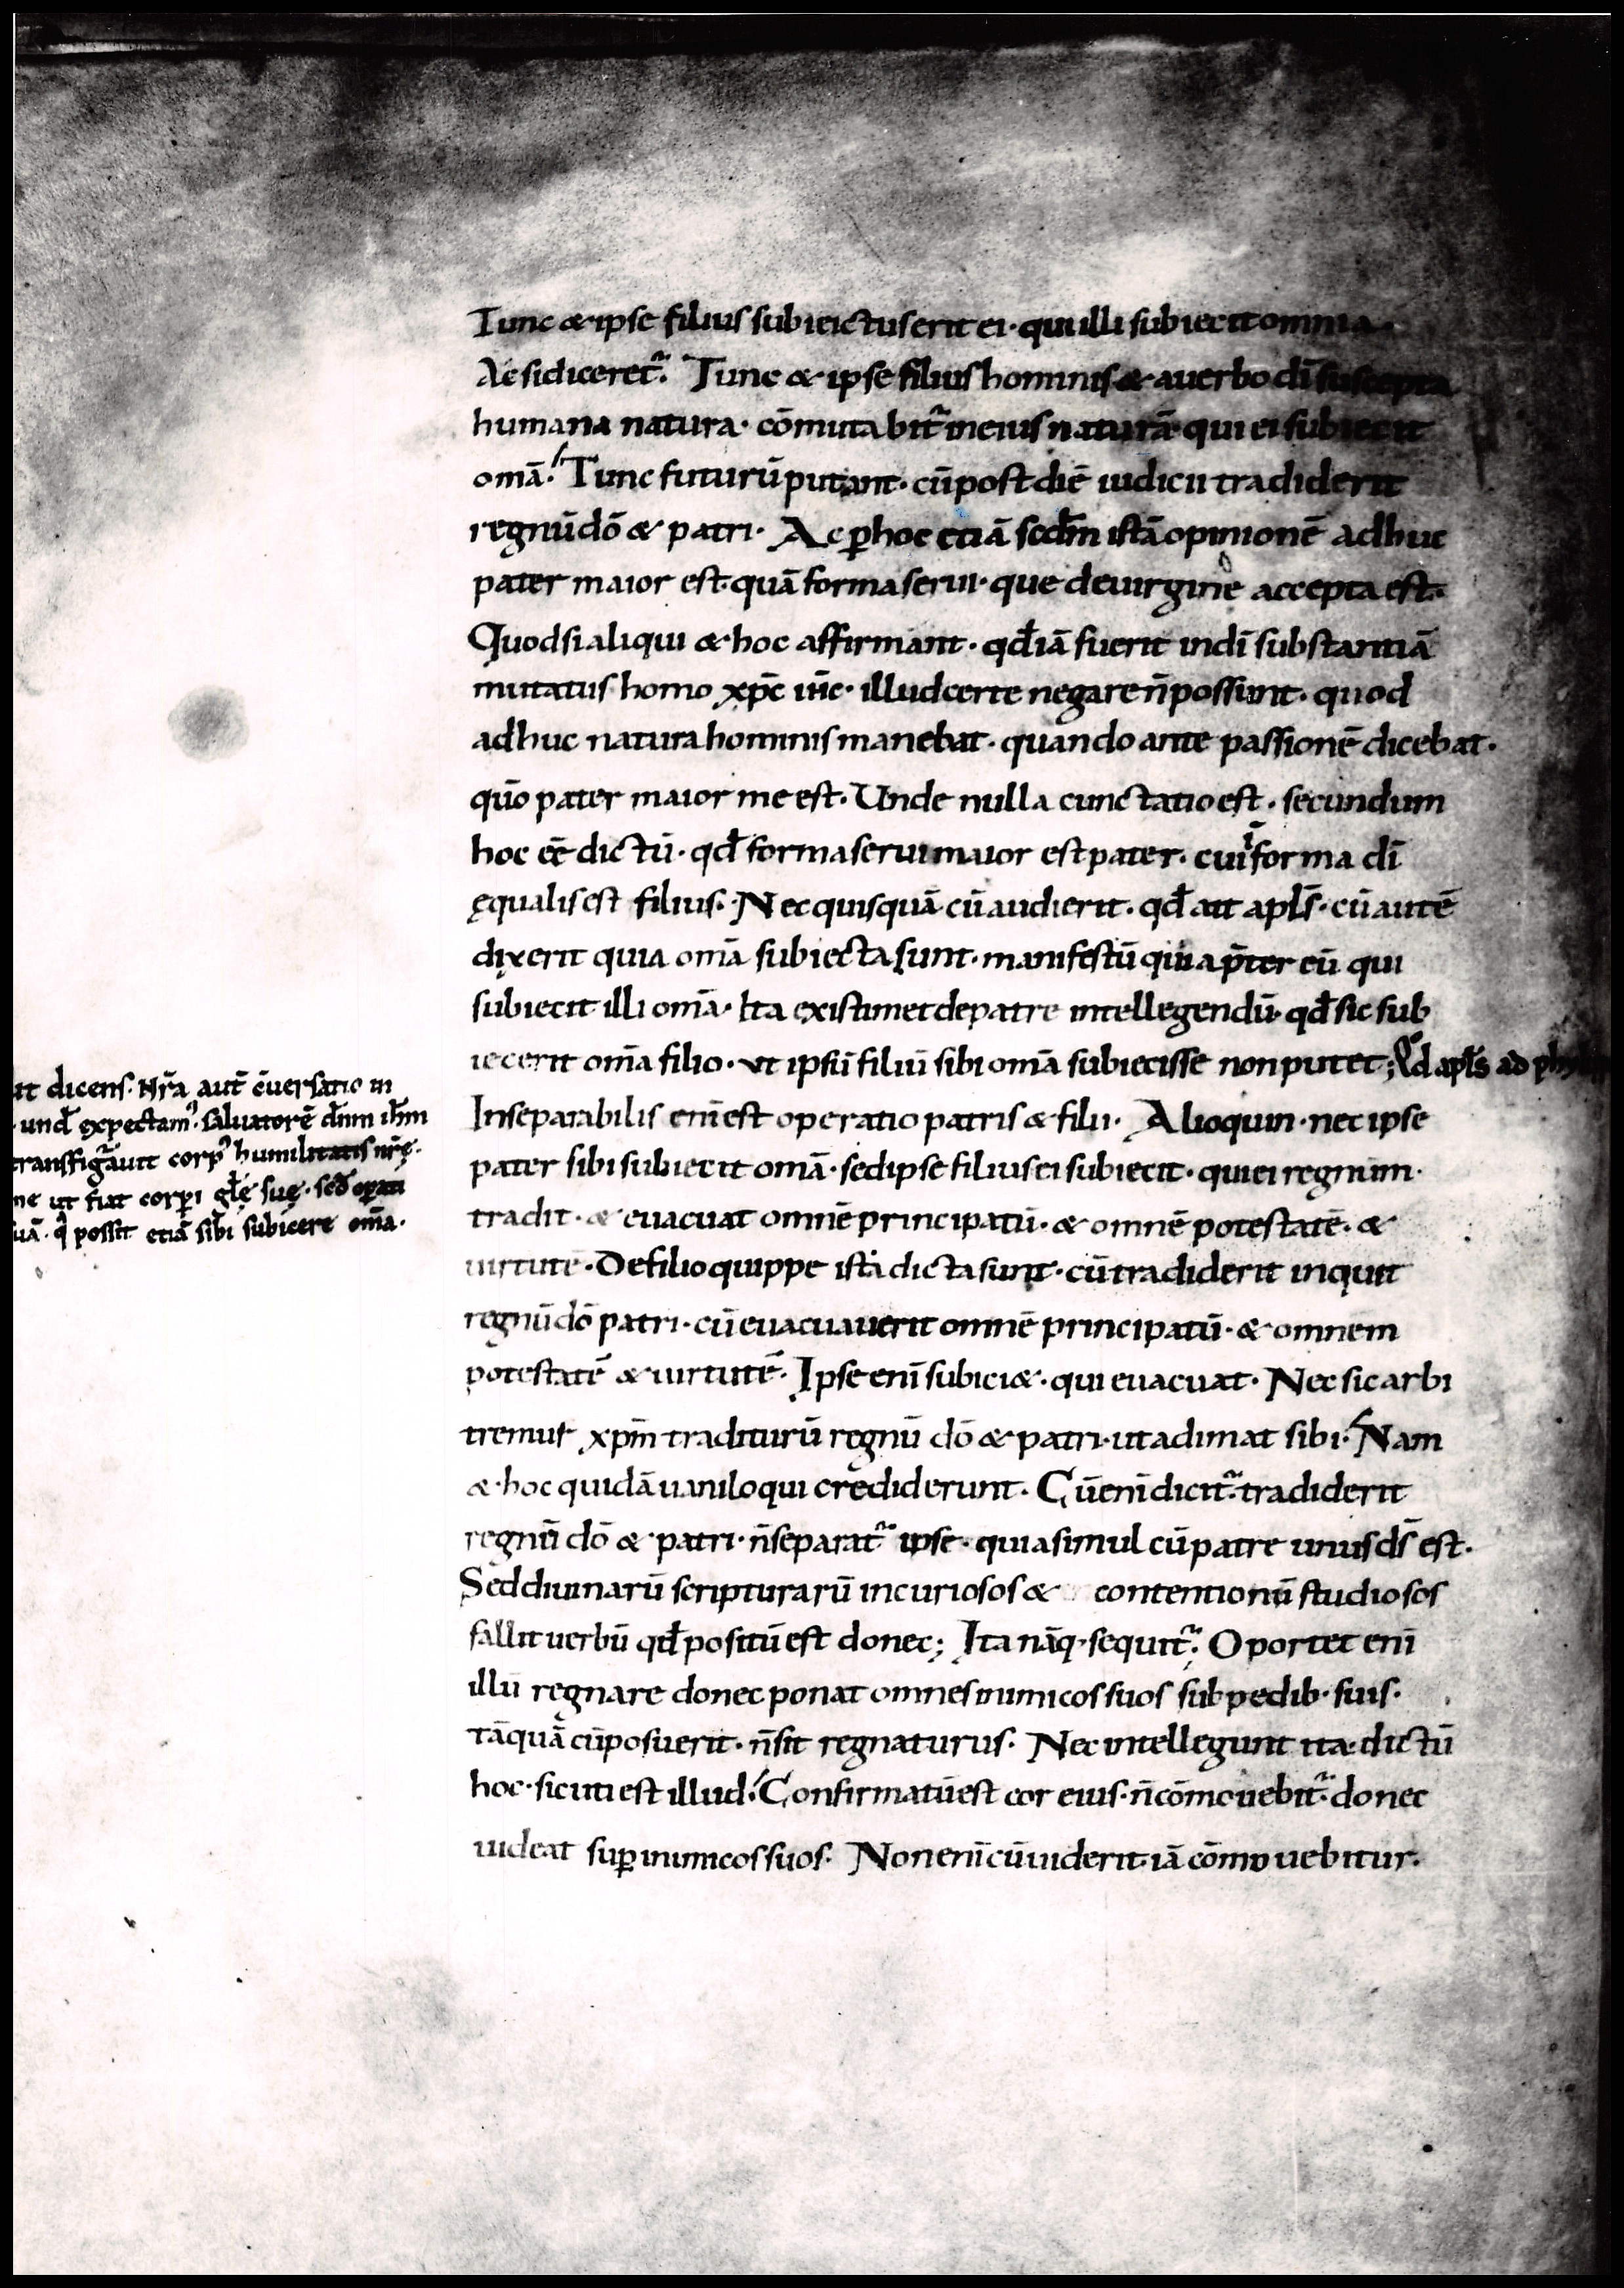 Tunc & ipse filius subieictus erit ei · qui illi subiecit omnia ·
Ac si diceret᷑. Tunc & ipse filius hominis & a uerbo dī suscepta
humana natura · cōmutabit᷑ in eius naturā · qui ei subiecit
omā. Tunc futurū putant · cū post diē iudicii tradiderit
regnū dō & patri · Ac ꝑ hoc etiā scdm̄ istā opinionē adhuc
pater maior est · quā forma serui · que de uirgine accepta est ·
Quod si aliqui & hoc affirmant · qđ iā fuerit in dī substantiā
mutatus homo xp̄c · illud certe negare n̄ possunt · quod
adhuc natura hominis manebat · quando ante passionē dicebat ·
qūo pater maior me est · Unde nulla cunctatio est · secundum
hoc eē dictū · qđ forma serui maior est pater · cui᷑ forma dī
ęqualis est filius · Nec quisquā cū audierit · qđ ait apl̄s · cū autē
dixerit quia omā subiecta sunt · manifestū quia p̄ter eū qui
subiecit illi omā · Ita existimet de patre intellegendū · qđ sic sub
iecerit om̄a filio · ut ipsū filiū sibi omā subiecisse non putet ; Qđ apl̄s ad
Inseparabilis enī est operatio patris & filii · Alioquin · nec ipse
pater sibi subiecit omā · sed ipse filius ei subiecit · qui ei regnum ·
tradit · & euacuat omnē principatū · & omnē potestatē · &
uirtutē · De filio quippe ista dicta sunt · cū tradiderit inquit
regnū dō patri · cū euacuauerit omnē principatū · & omnem
potestatē & uirtutē · Ipse enī subici& · qui euacuat · Nec sic arbi
tremur xp̄m traditurū regnū dō & patri · ut adimat sibi · Nam
& hoc quidā uaniloqui crediderunt · Cū enī dicit᷑ · tradiderit
regnū dō & patri · n̄ separat᷑ ipse · quia simul cū patre unus ds̄ est ·
Sed diuinarū scripturarū incuriosos & contentionū studiosos
fallit uerbū qđ positū est donec ; Ita nāq · sequit᷑ · Oportet enī
illū regnare donec ponat omnes inimicos suos sub pedib · suis ·
tāquā cū posuerit · n̄ sit regnaturus · Nec intellegunt ita dictū
hoc · sicuti est illud · Confirmatū est cor eius · n̄ cōmouebit᷑ · donec
uideat suꝑ inimicos suos · Non enī cū uiderit iā cōmouebitur ·
dicens · Nr̄a aut̄ cūersatio in
und̄ expectam᷒ · saluatorē dn̄m ih̄m
transfigurauit corp᷒ humilitatis nr̄ę ·
ut fiat corpori gl̄ę suę · sed̄
possit etiā sibi subicere om̄a ·